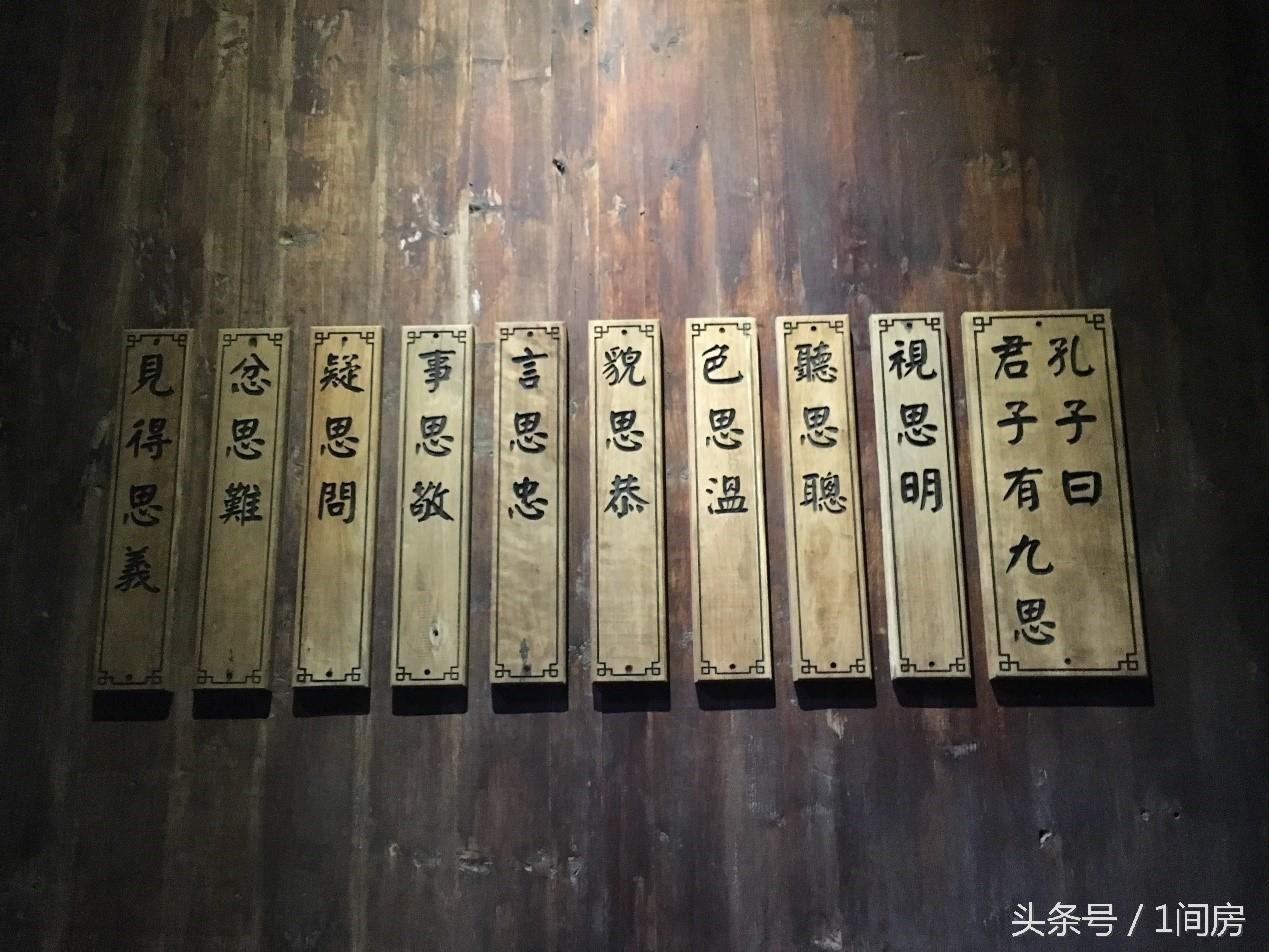 孔子曰
君子有九思
視思明
聽思聰
色思溫
貌思恭
言思忠
事思敬
疑思問
忿思難
見得思義
头条号 / 1间房